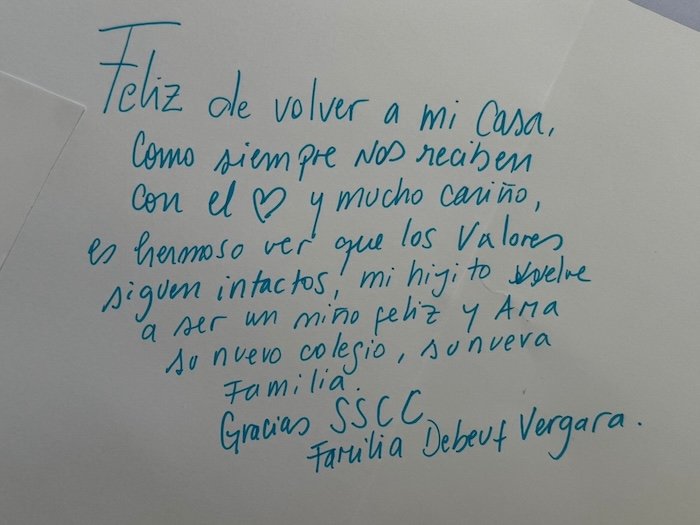 Feliz de volver a mi casa,
Como siempre nos reciben
con el ♡ y mucho cariño,
es hermoso ver que los valores
siguen intactos, mi hijito vuelve
a ser un niño feliz y Ama
su nuevo colegio, su nueva
Familia.
Gracias SSCC
Familia Debeuf Vergara.